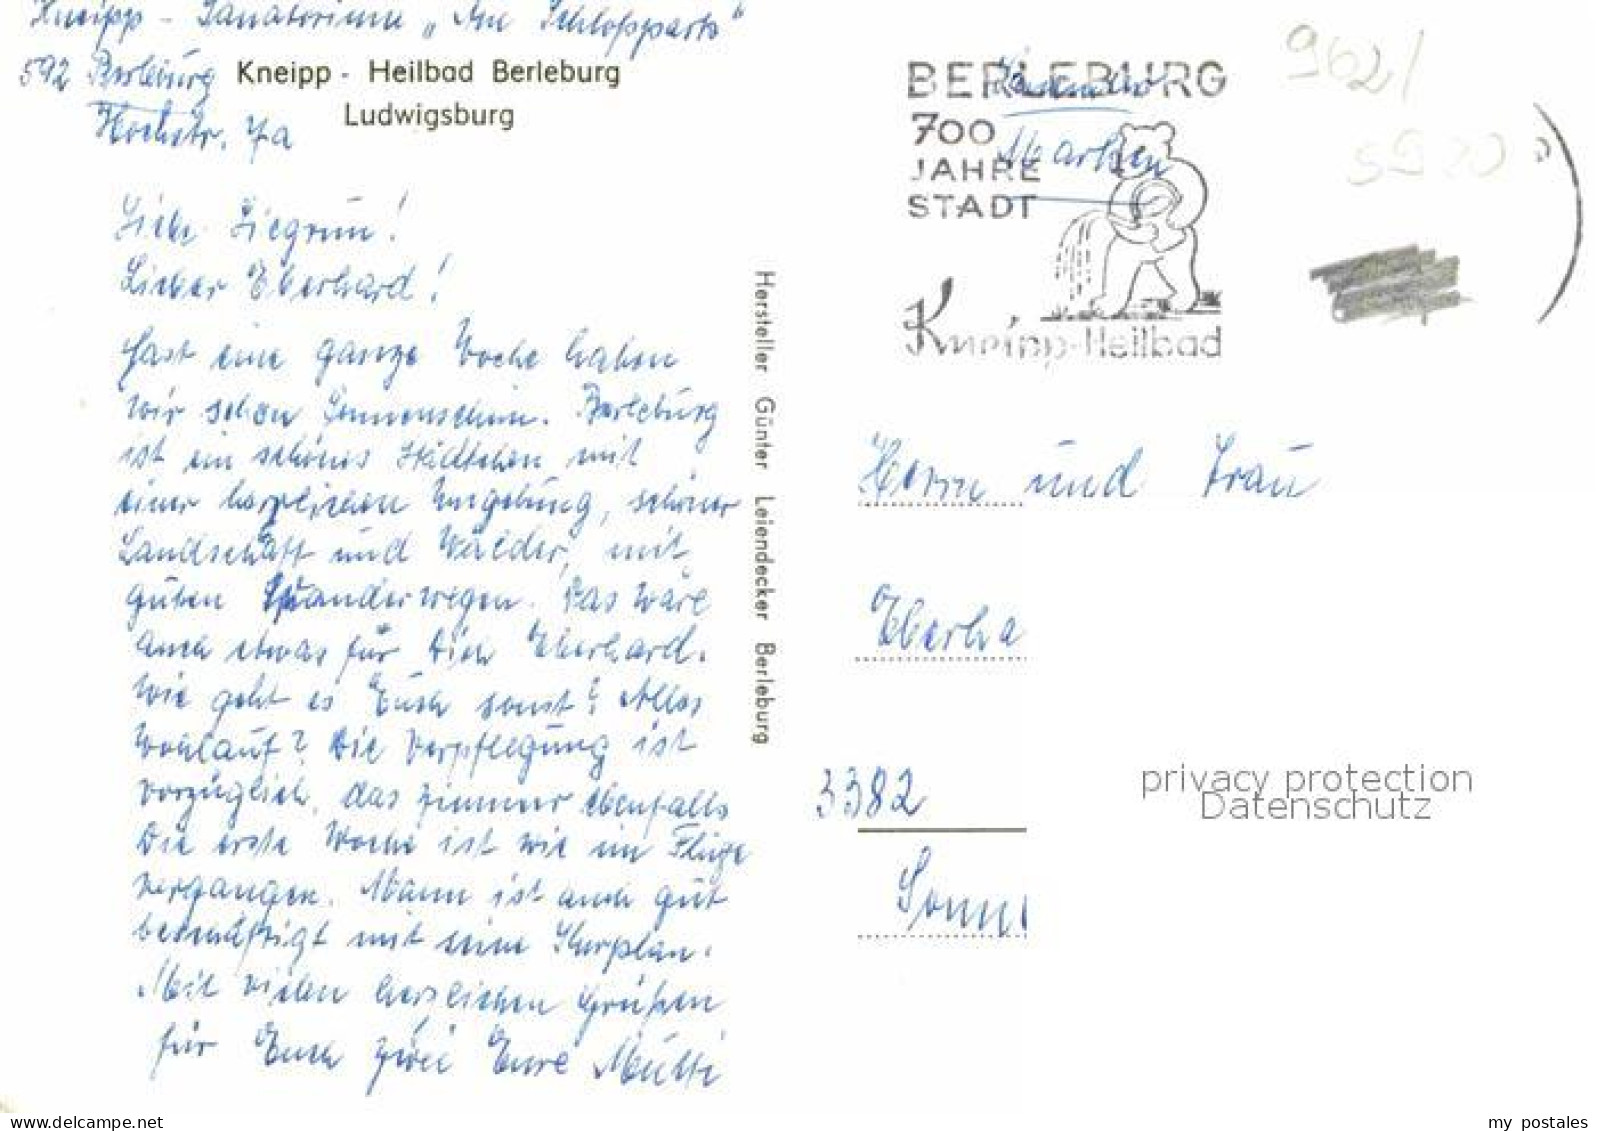 Kneipp - Sanatorium „Am Schloßpark"
592 Berleburg
Hochstr. 7a
Kneipp - Heilbad Berleburg
Ludwigsburg
Liebe Siegrun!
Lieber Eberhard!
Fast eine ganze Woche haben
wir schon Sonnenschein. Berleburg
ist ein schönes Städtchen mit
einer herrlichen Umgebung, schöner
Landschaft und Wälder, mit
guten Wanderwegen. Das wäre
auch etwas für Dich Eberhard.
Wie geht es Euch sonst? Alles
wohlauf? Die Verpflegung ist
vorzüglich, das Zimmer ebenfalls
Die erste Woche ist wie im Fluge
vergangen. Mann ist auch gut
beschäftigt mit seine Kurplan.
Mit vielen herzlichen Grüßen
für Euch zwei Eure Mutti
Hersteller Günter Leiendecker Berleburg
BERLEBURG
700
JAHRE
STADT
Kneipp-Heilbad
Marken
962/
5920
Herrn und Frau
Eberha
3382
Sonn
privacy protection
Datenschutz
delcampe.net
my_postales